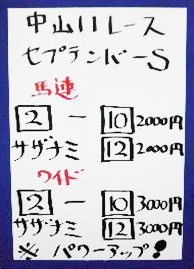 中山11レース
セプテンバーS
馬連
2 ー 10 2000円
サザナミ 12 2000円
ワイド
2 ー 10 3000円
サザナミ 12 3000円
※ パワーアップ!